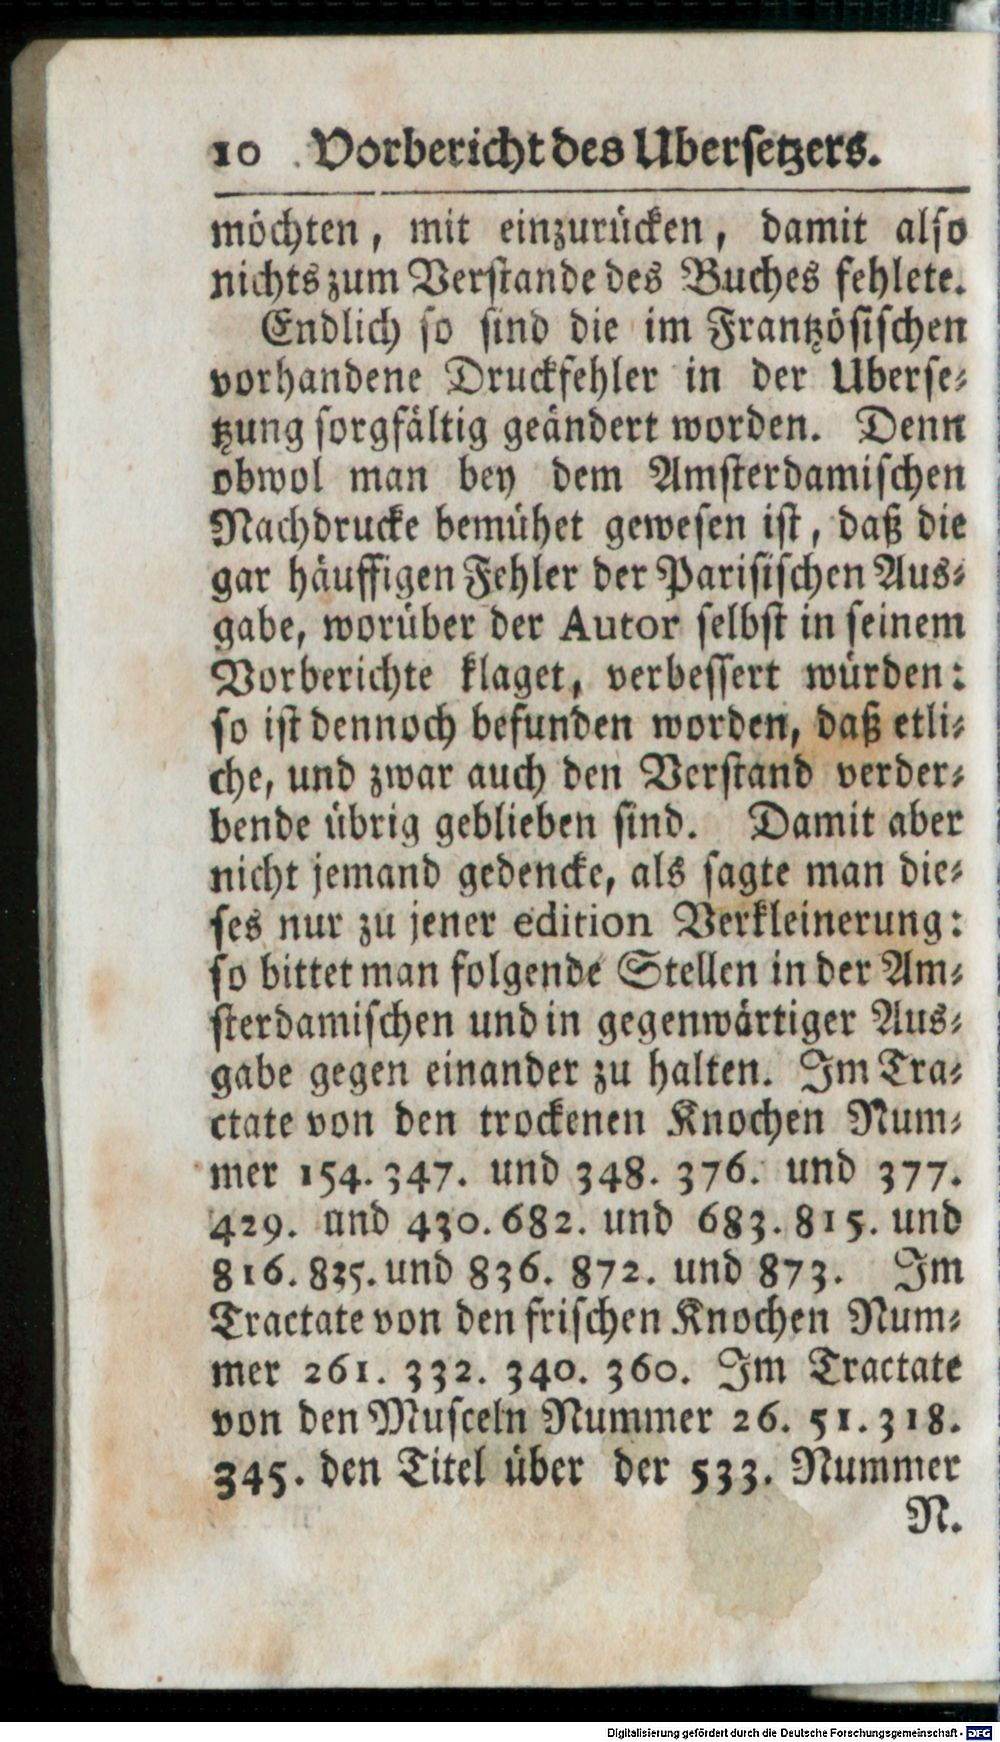 10 Vorbericht des Ubersetzers.
möchten, mit einzurücken, damit also
nichts zum Verstande des Buches fehlete.
Endlich so sind die im Frantzösischen
vorhandene Druckfehler in der Uberse-
tzung sorgfältig geändert worden. Denn
obwol man bey dem Amsterdamischen
Nachdrucke bemühet gewesen ist, daß die
gar häuffigen Fehler der Parisischen Aus-
gabe, worüber der Autor selbst in seinem
Vorberichte klaget, verbessert würden:
so ist dennoch befunden worden, daß etli-
che, und zwar auch den Verstand verder-
bende übrig geblieben sind. Damit aber
nicht jemand gedencke, als sagte man die-
ses nur zu jener edition Verkleinerung:
so bittet man folgende Stellen in der Am-
sterdamischen und in gegenwärtiger Aus-
gabe gegen einander zu halten. Im Tra-
ctate von den trockenen Knochen Num-
mer 154. 347. und 348. 376. und 377.
429. und 430. 682. und 683. 815. und
816. 835. und 836. 872. und 873. Im
Tractate von den frischen Knochen Num-
mer 261. 332. 340. 360. Im Tractate
von den Musceln Nummer 26. 51. 318.
345. den Titel über der 533. Nummer
N.
Digitalisierung gefördert durch die Deutsche Forschungsgemeinschaft - DFG